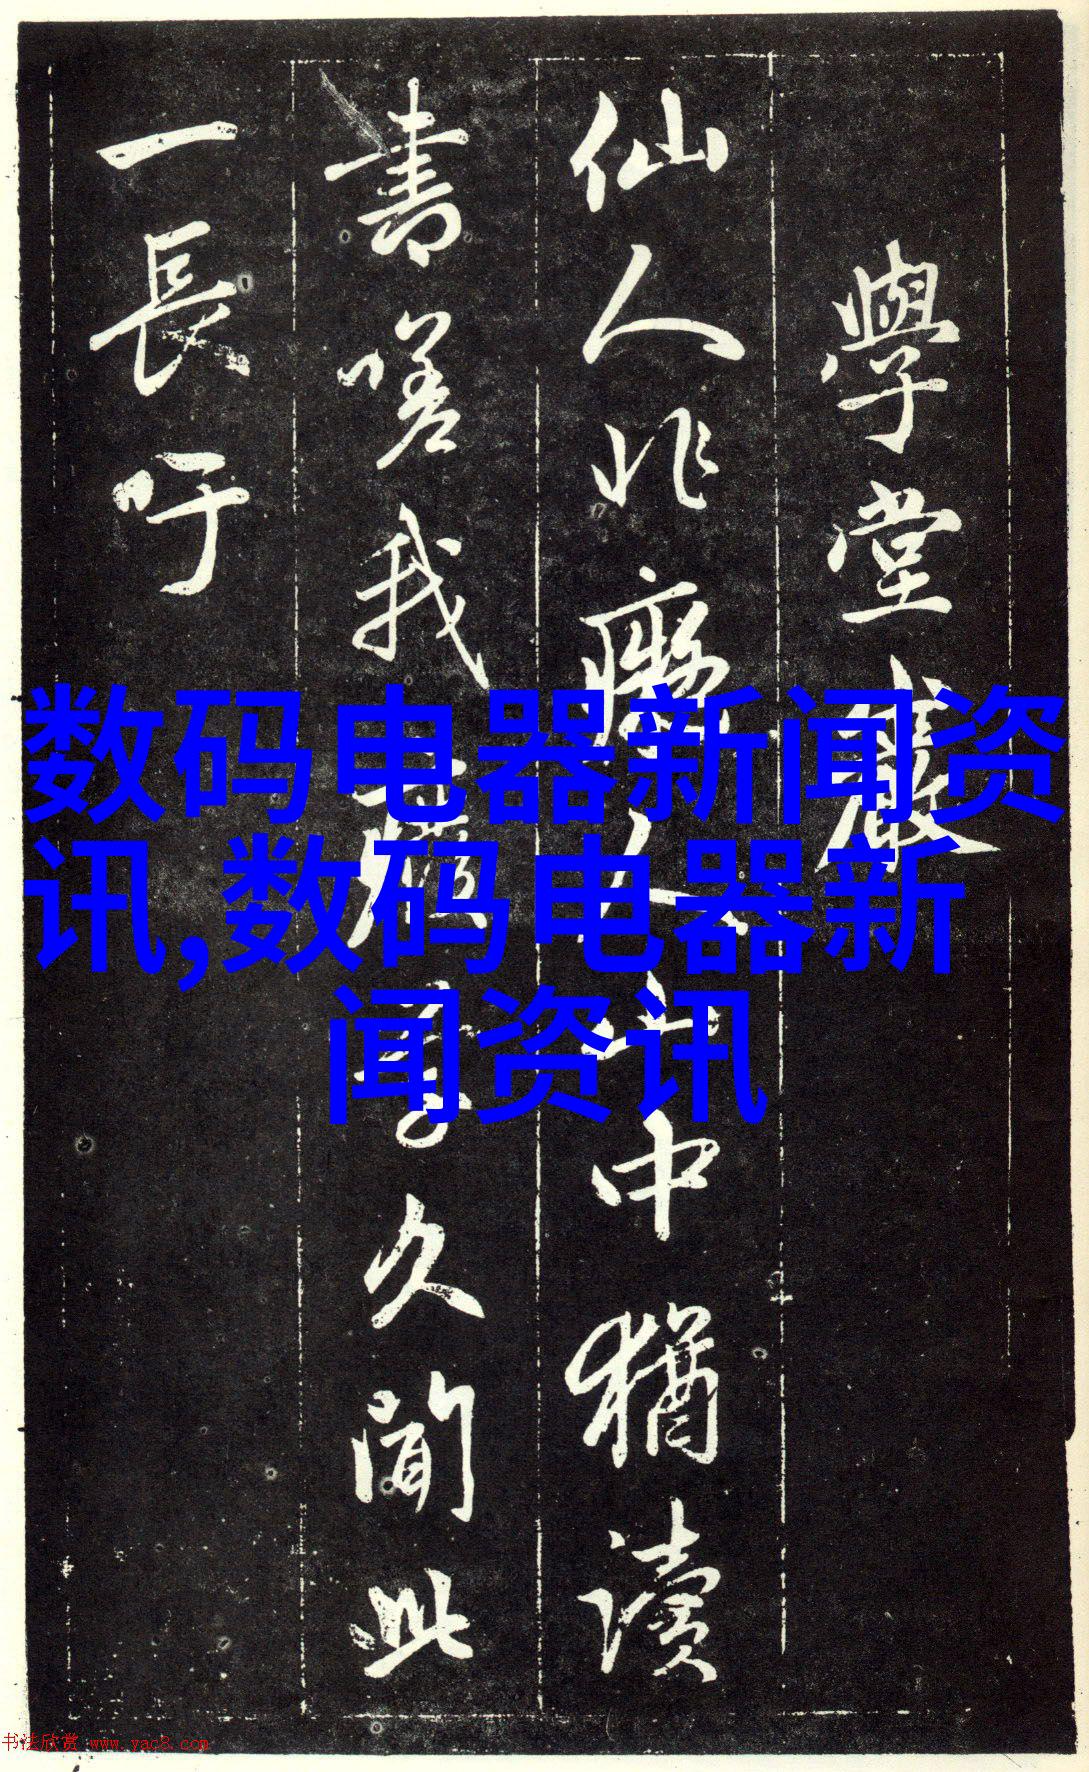 學堂巖
仙人非人山中猶讀
書嗟我學久聞此
一長吁
数码电器新闻资
讯,数码电器新
闻资讯
书法欣赏 www.yac8.com